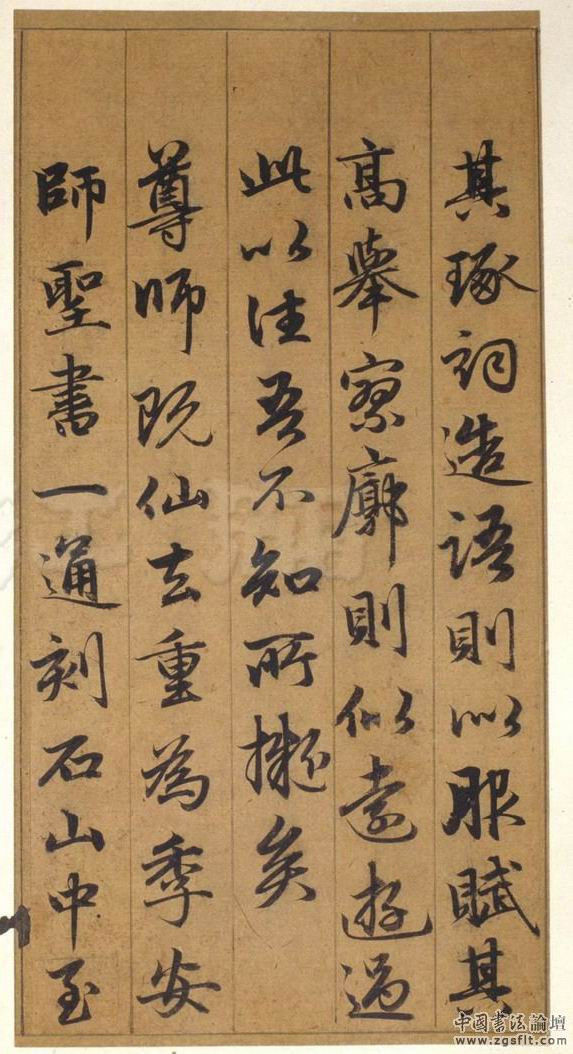 其琢詞造語則以服賦其
高舉寥廓則似遠遊過
此以往吾不知所擬矣
尊師既仙去重為季安
師聖書一通刻石山中至
中國書法論壇
www.zgsflt.com